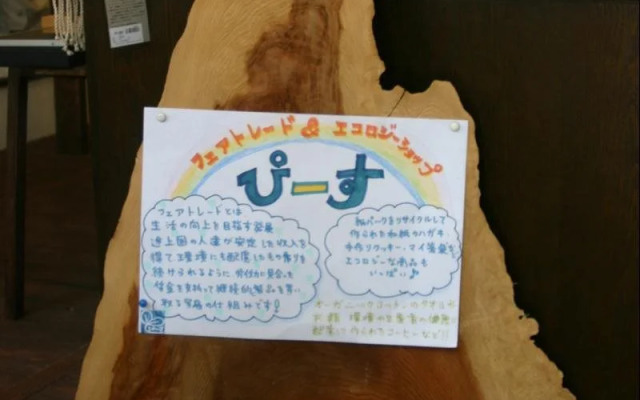 フェアトレード & エコロジーショップ
ぴーす
フェアトレードとは
生活の向上を目指す発展
途上国の人達が安定した収入を
得て、環境にも配慮したもの作りを
続けられるように 労働に見合った
賃金を支払って継続的に製品を買い
取る 貿易の仕組みです!
紙パックをリサイクルして
作られた和紙のハガキ
手作りクッキー、マイ箸袋など
エコロジーな商品も
いっぱい♪
オーガニックコットンのタオルや
お箸 環境や生産者の健康に
配慮して作られたコーヒーなど!!